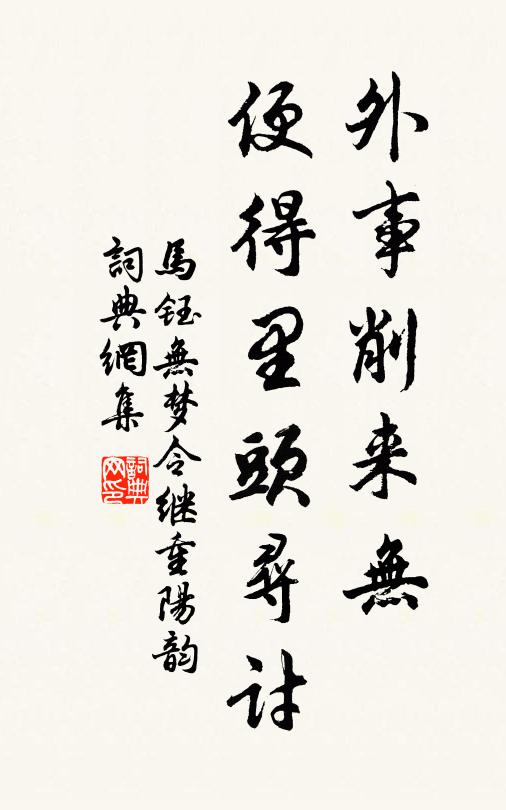 外事削来無
便得里頭尋討
馬鈺無梦令继重陽韵
詞典網集
詞典网印